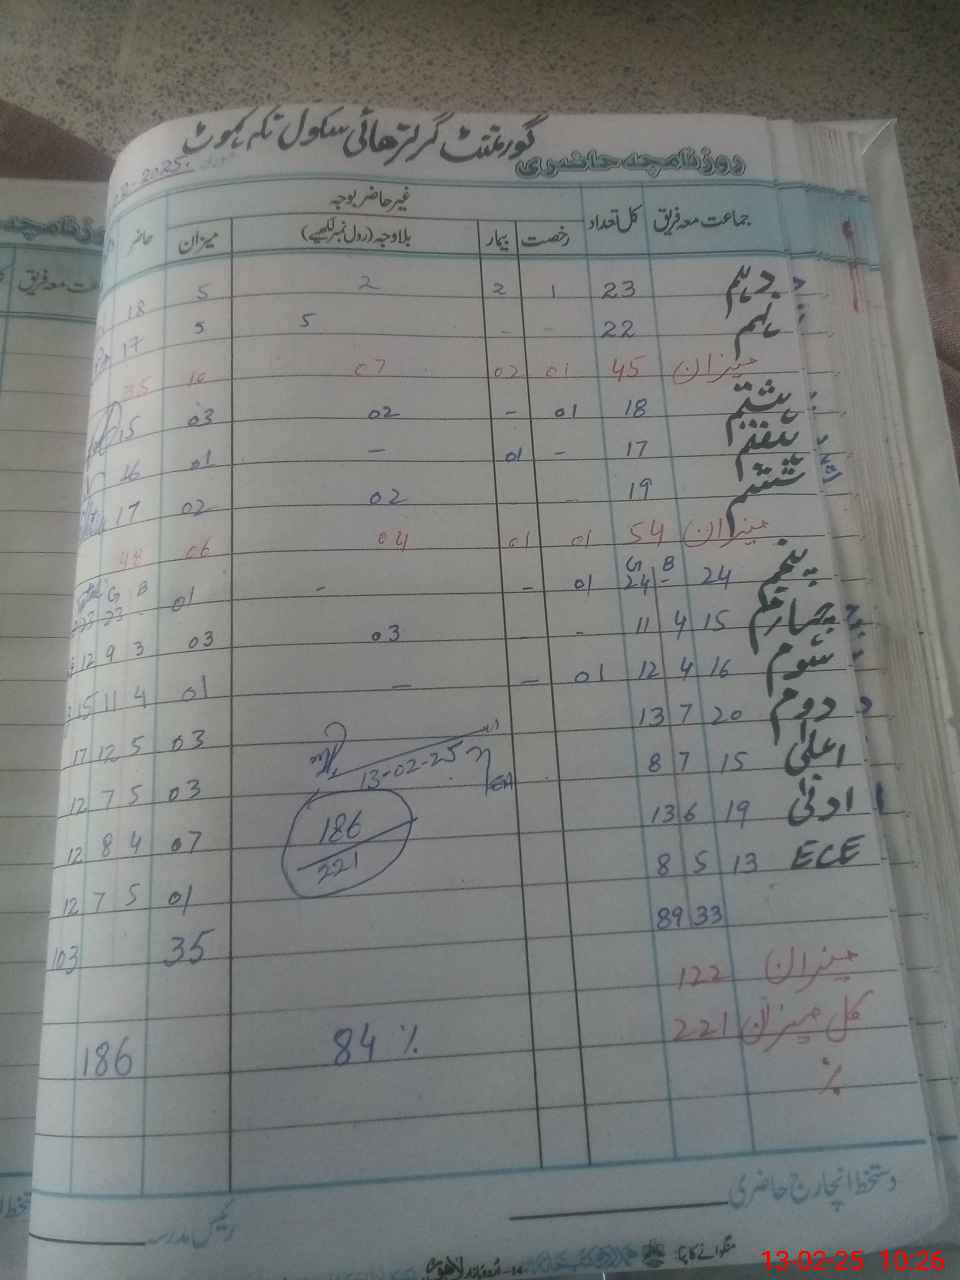 گورنمنٹ گرلز ہائی سکول
روزنامچہ حاضری
2025
جماعت معہ فریق کل تعداد غیر حاضر بوجہ حاضر
رخصت بیمار بلاوجہ (رول نمبر لکھیے) میزان
دہم 23 1 2 2 5 18
نہم 22 - - 5 5 17
میزان 45 01 02 07 10 35
ہشتم 18 01 - 02 03 15
ہفتم 17 - 01 - 01 16
ششم 19 - 02 02 17
میزان 54 01 01 04 06 48
G B G B
پنجم 24 - 24 01 - - 01 23 23
چہارم 15 4 11 - - 03 03 3 9 12
سوم 16 4 12 01 - - 01 4 11 15
دوم 20 7 13 03 5 12 17
اعلیٰ 15 7 8 03 5 7 12
13-02-25
ادنیٰ 19 6 13 07 4 8 12
186
221
ECE 13 5 8 01 5 7 12
33 89 35 103
میزان 122
کل میزان 221 84 % 186
%
دستخط انچارج حاضری
رئیس مدرسہ
13-02-25 10:26